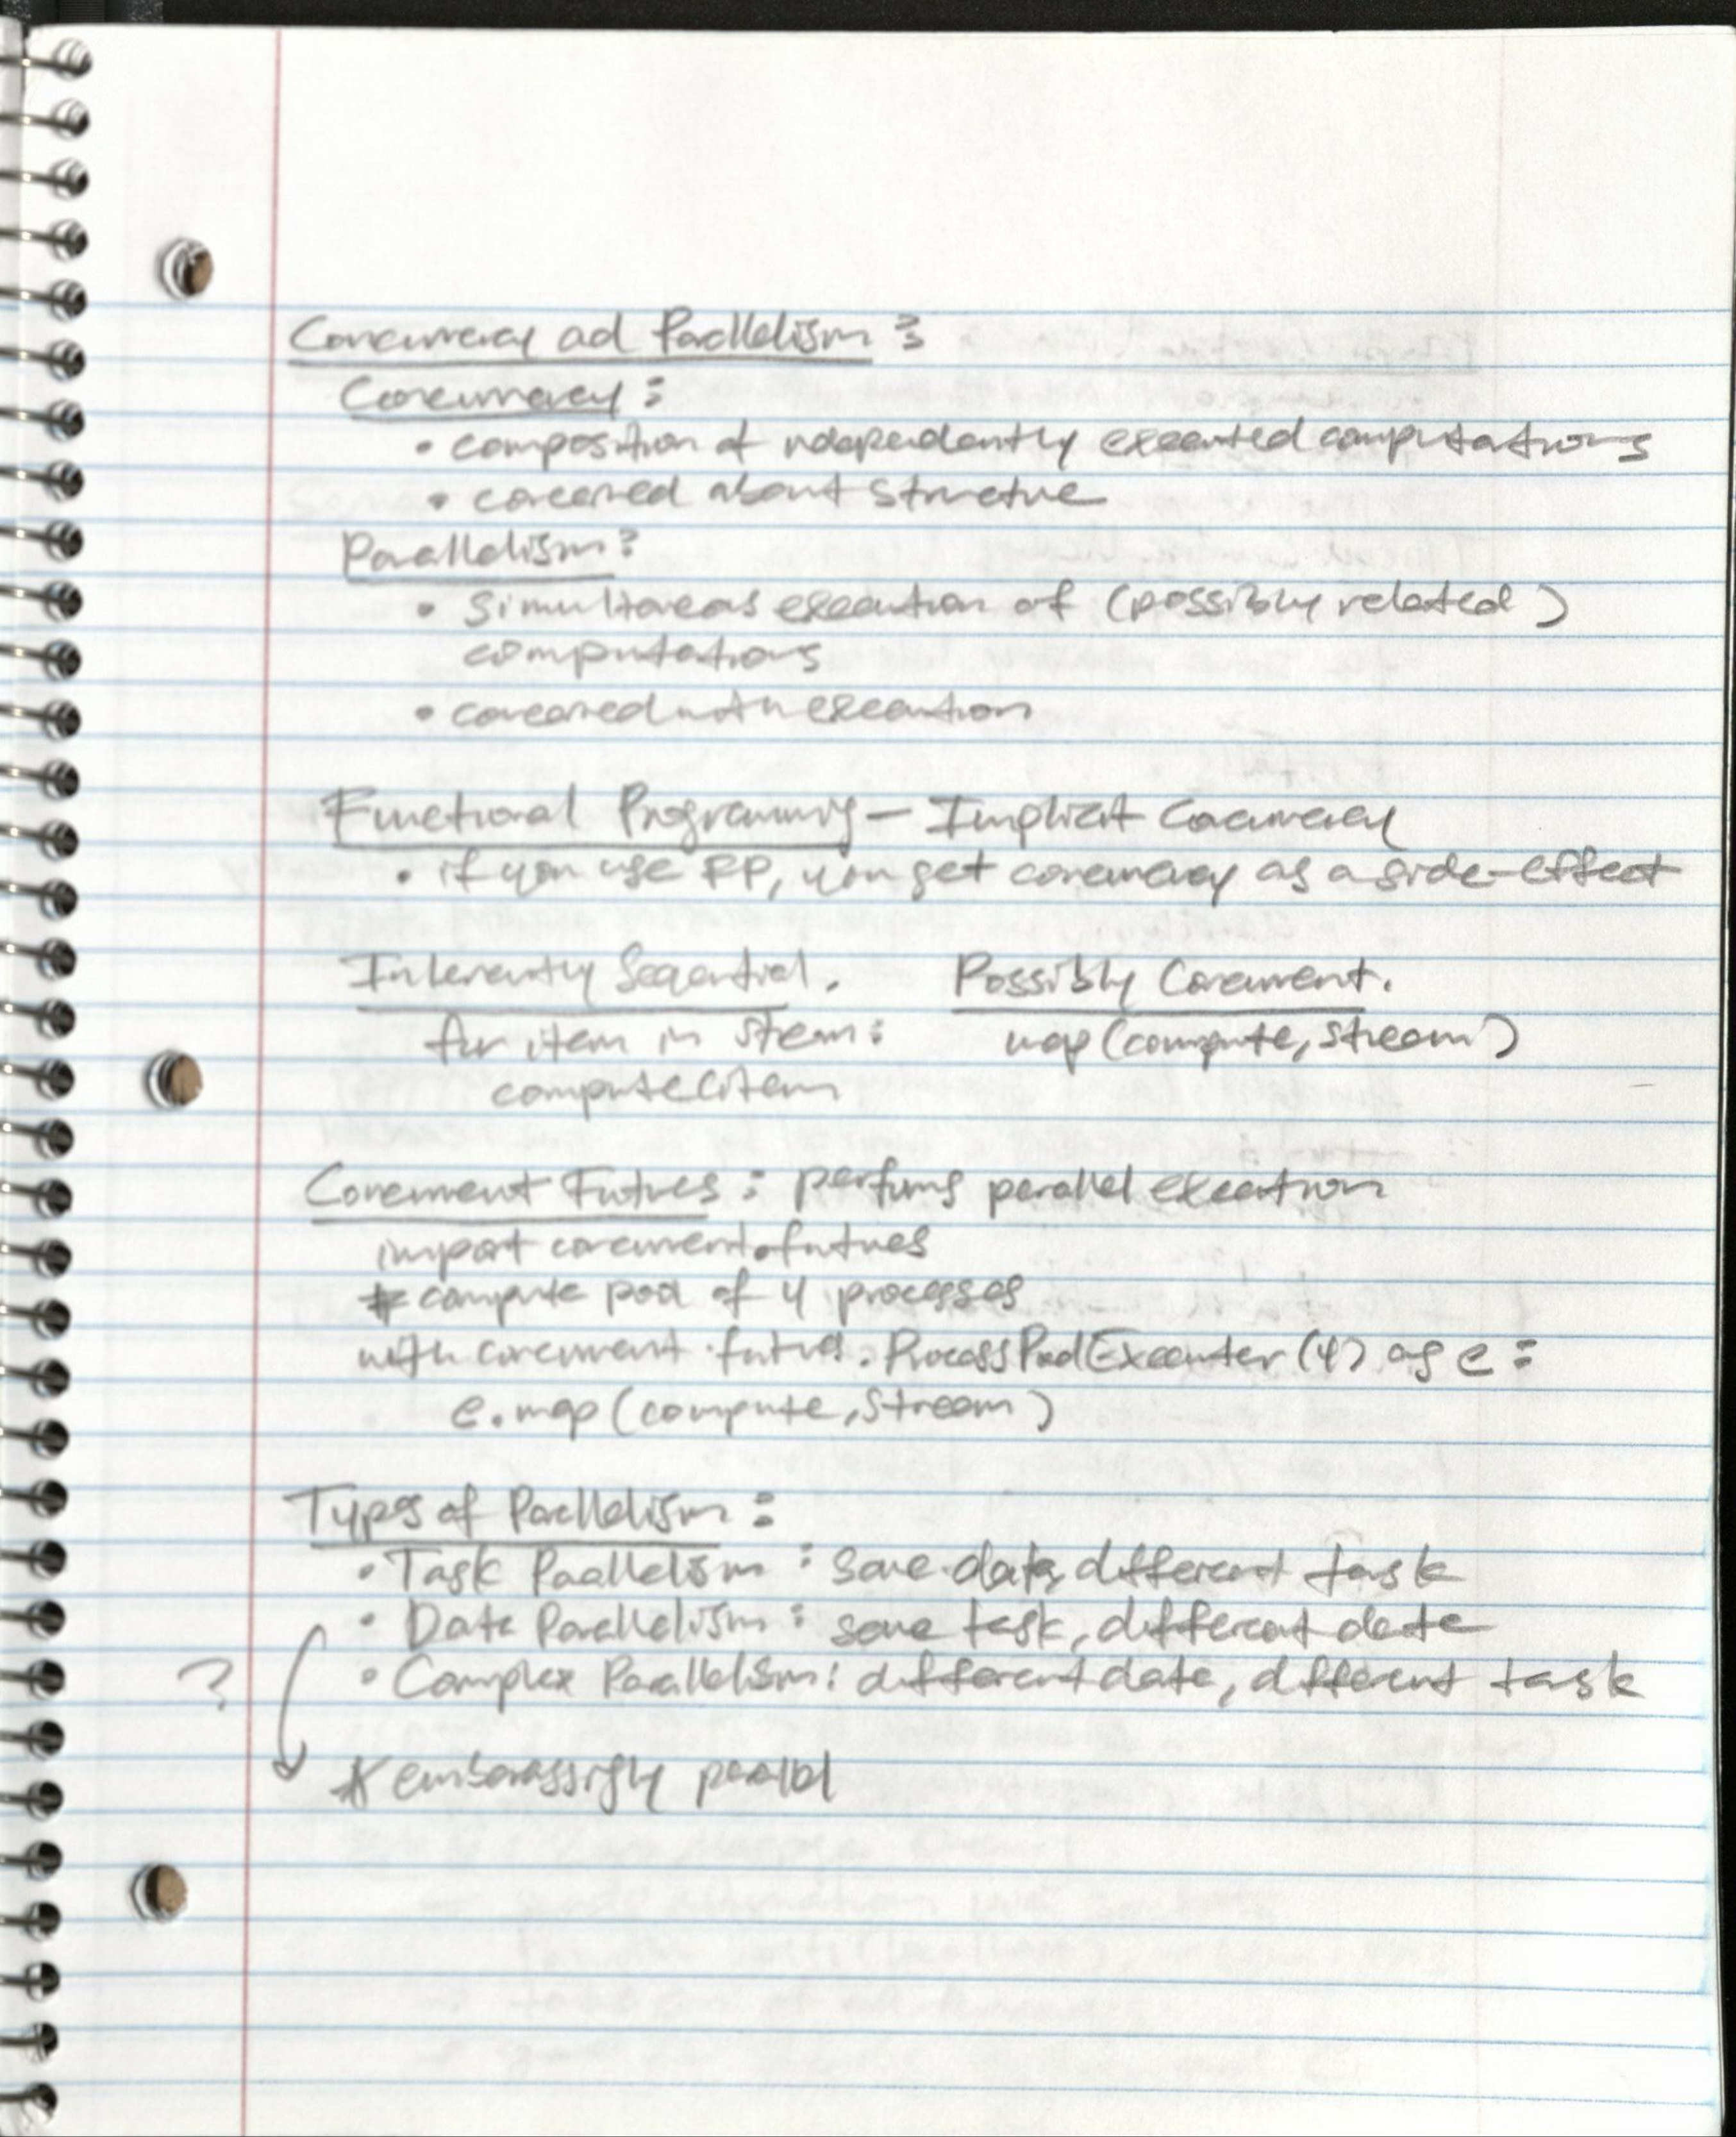 Concurrency ad Parallelism :
Concurrency :
• composition of independently executed computations
• concerned about structure
Parallelism:
• simultaneous execution of (possibly related)
computations
• concerned with execution
Functional Programming — Implicit Concurrency
• if you use FP, you get concurrency as a side-effect
Inherently Sequential. Possibly Concurrent.
for item in stream: map(compute, stream)
compute(item
Concurrent Futures : performs parallel execution
import concurrent.futures
# compute pool of 4 processes
with concurrent.futures.ProcessPoolExecuter (4) as e :
e.map(compute, stream)
Types of Parallelism :
• Task Parallelism : same data, different task
• Data Parallelism : same task, different data
? • Complex Parallelism: different data, different task
* embarassigly parallel